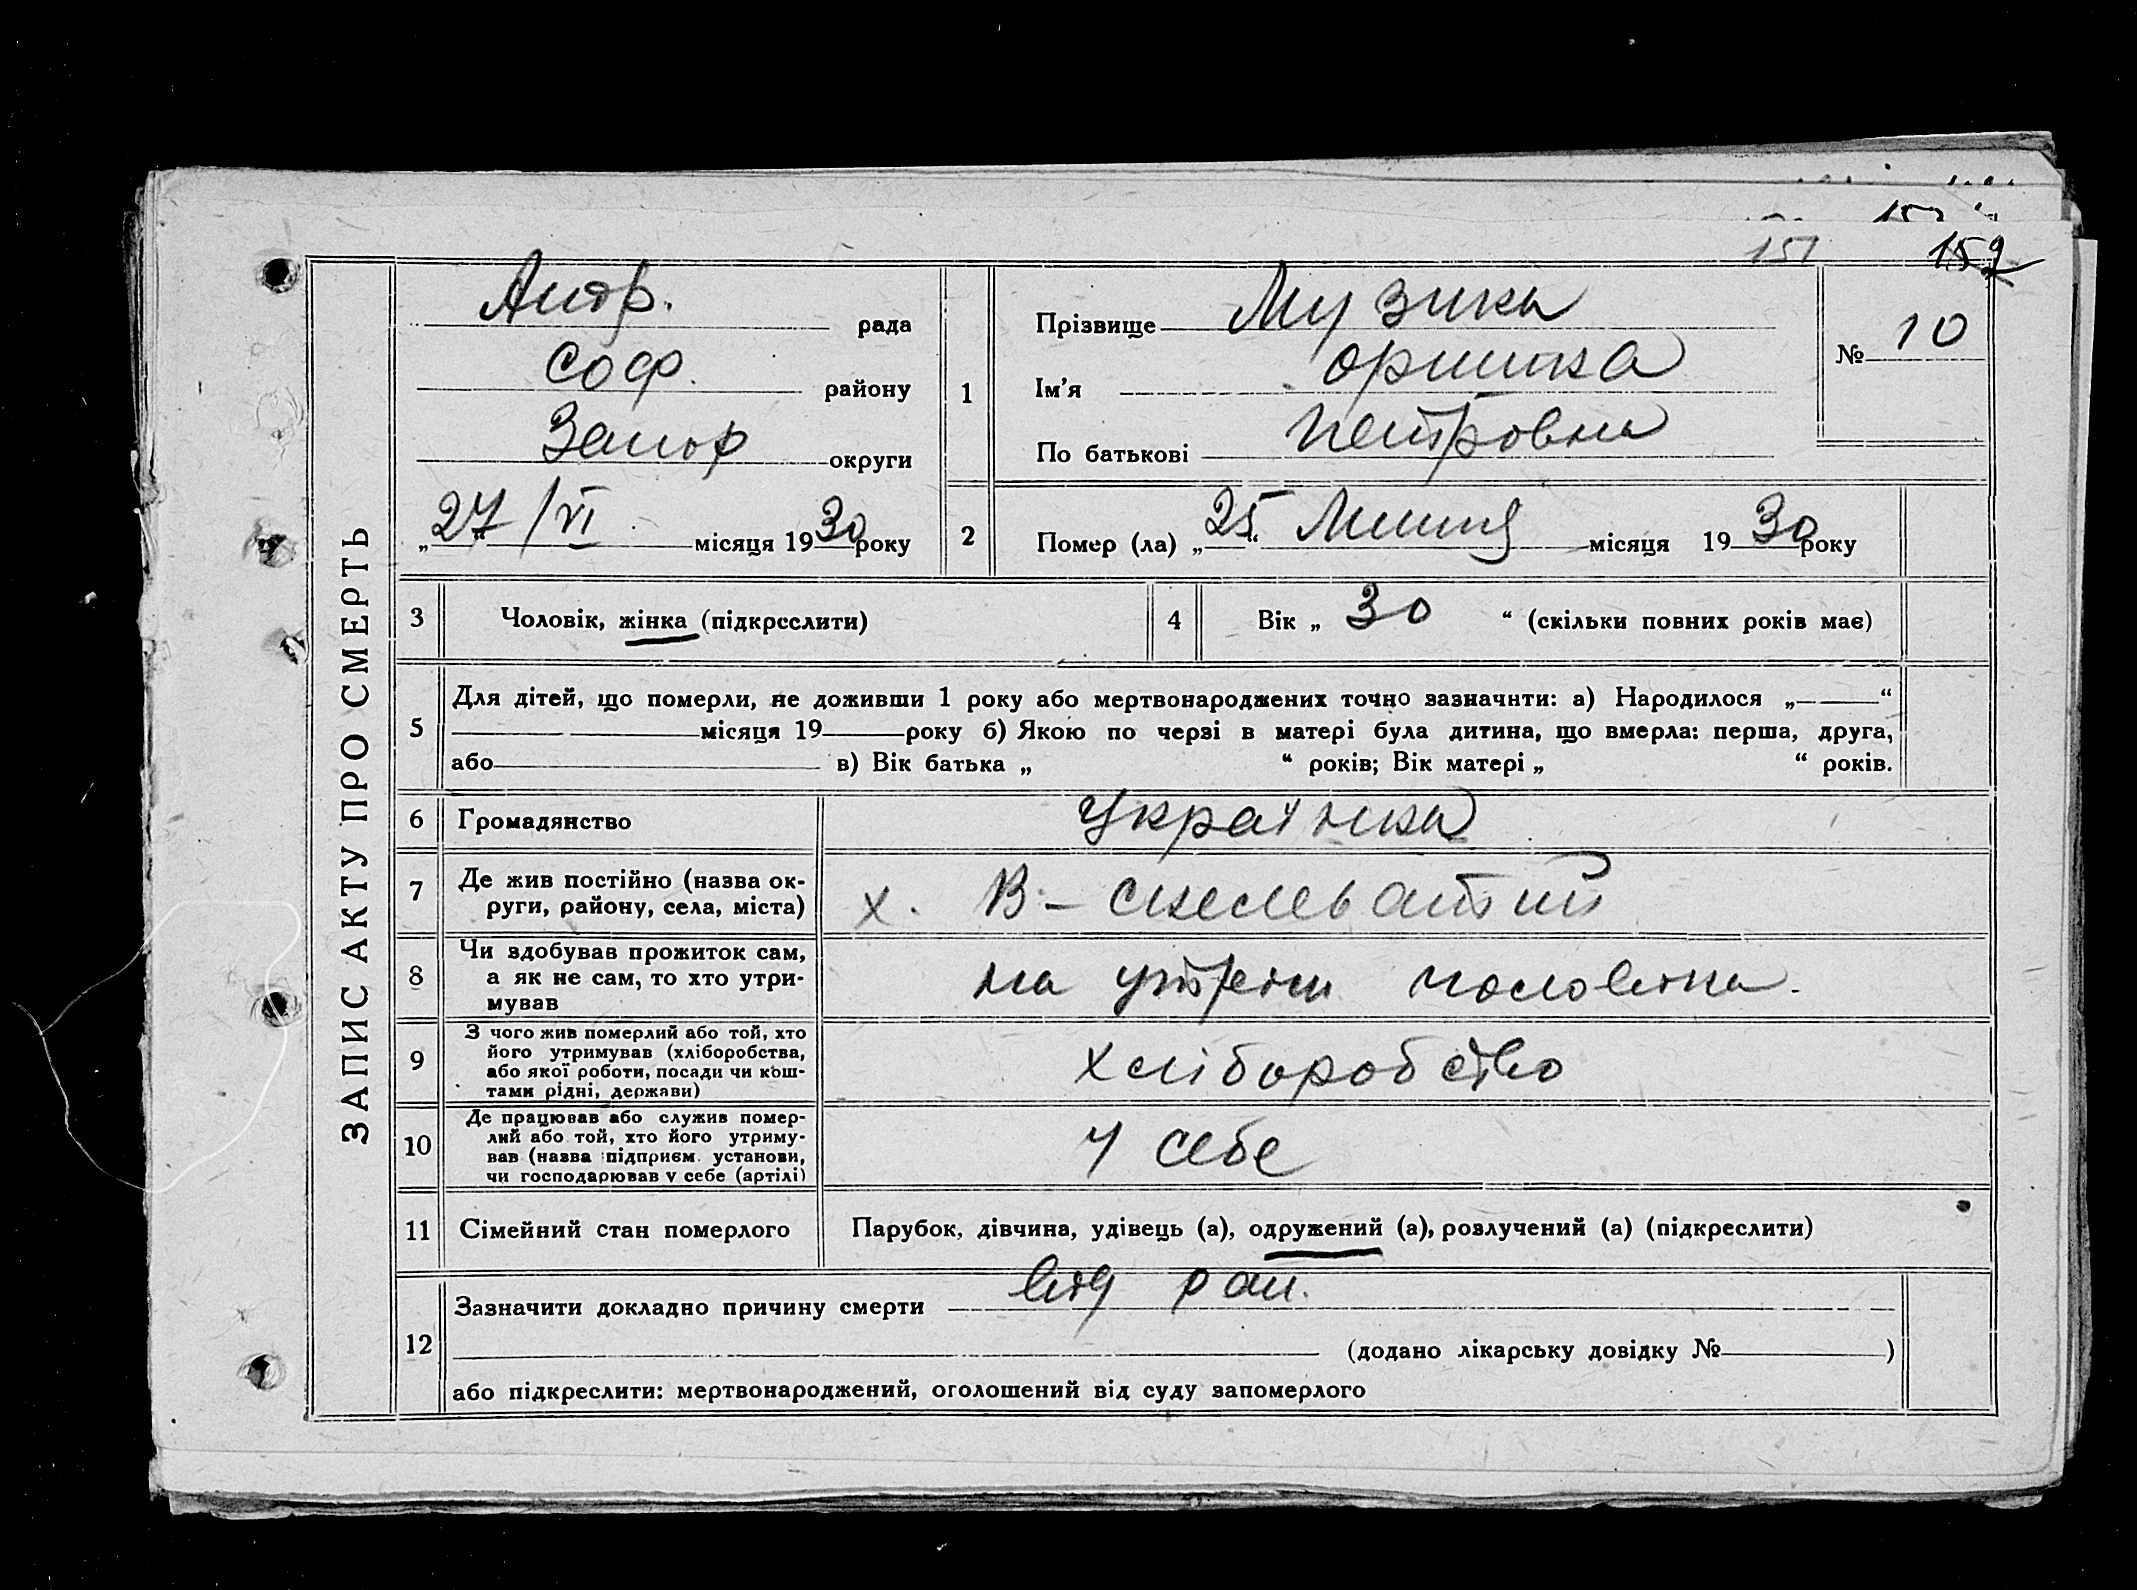 151 152
ЗАПИС АКТУ ПРО СМЕРТЬ
Андр. рада
Соф. району
Запор округи
„27“/VI місяця 1930 року
1
Прізвище Музика
Ім'я Оришка
По батькові Петровна
№ 10
2 Помер (ла) „25“ Липня місяця 1930 року
3 Чоловік, жінка (підкреслити)
4 Вік „30“ (скільки повних років має)
5 Для дітей, що померли, не доживши 1 року або мертвонароджених точно зазначити: а) Народилося „——“
місяця 19 року б) Якою по черзі в матері була дитина, що вмерла: перша, друга,
або в) Вік батька „ “ років; Вік матері „ “ років.
6 Громадянство Українка
7 Де жив постійно (назва ок-
руги, району, села, міста)
х. В-Скелеватий
8 Чи здобував прожиток сам,
а як не сам, то хто утри-
мував
на утрені чоловіка.
9 З чого жив померлий або той, хто
його утримував (хліборобства,
або якої роботи, посади чи кош-
тами рідні, держави)
хліборобство
10 Де працював або служив помер-
лий або той, хто його утриму-
вав (назва підприєм. установи,
чи господарював у себе (артілі)
У себе
11 Сімейний стан померлого Парубок, дівчина, удівець (а), одружений (а), розлучений (а) (підкреслити)
12 Зазначити докладно причину смерти від ран.
(додано лікарську довідку № )
або підкреслити: мертвонароджений, оголошений від суду запомерлого